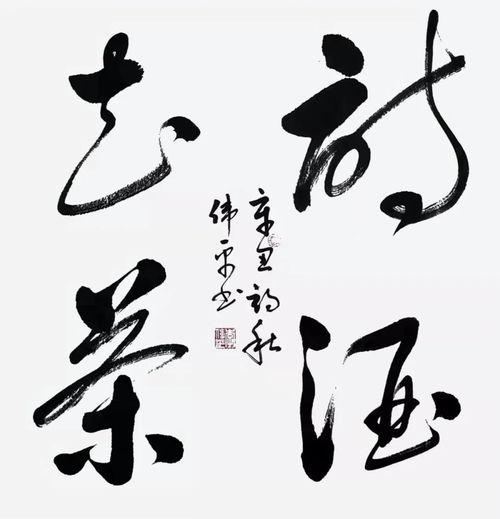 诗酒
花茶
辛丑初秋
伟平书